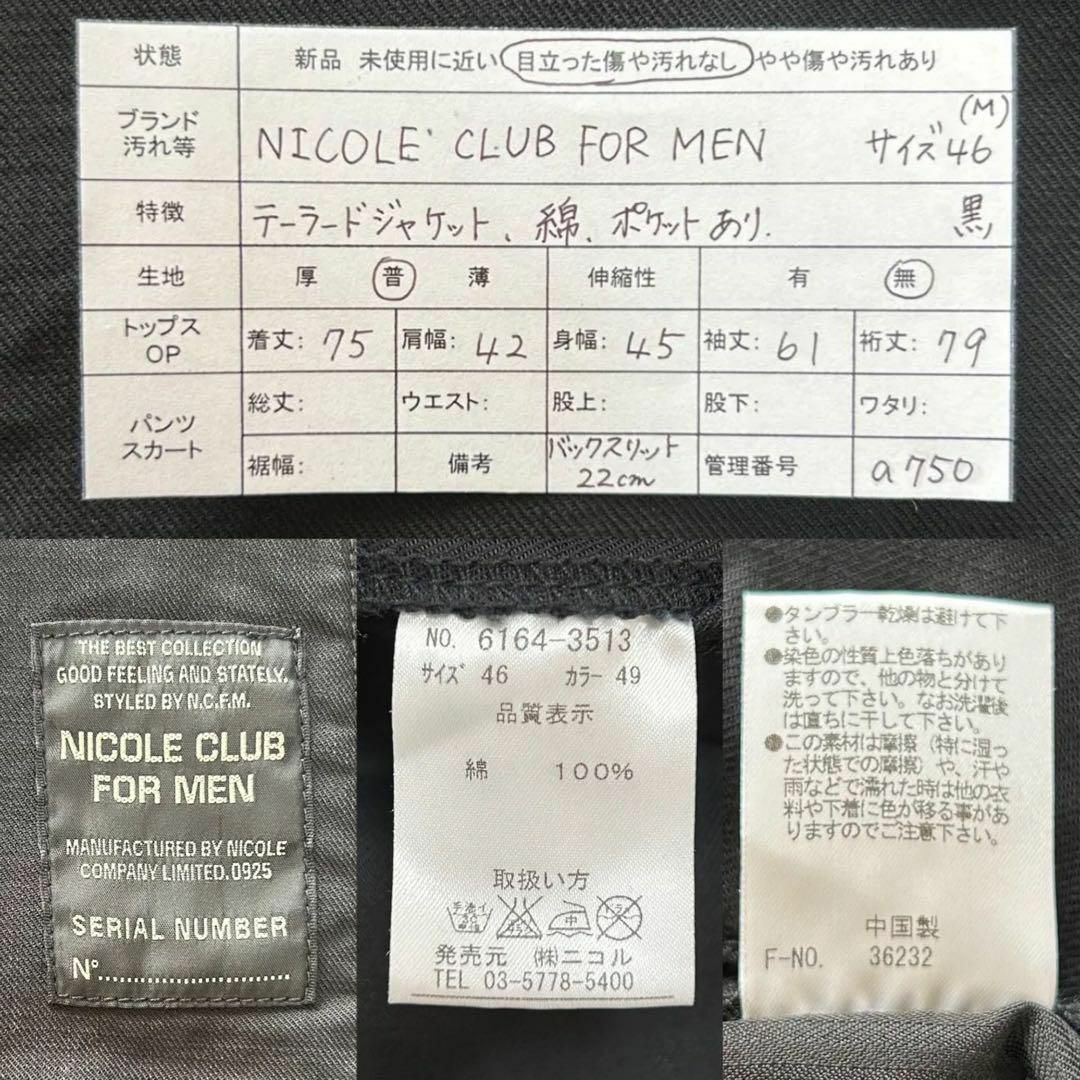 状態 新品 未使用に近い 目立った傷や汚れなし やや傷や汚れあり
ブランド
汚れ等 NICOLE CLUB FOR MEN サイズ46
(M)
特徴 テーラードジャケット、綿、ポケットあり. 黒
生地 厚 普 薄 伸縮性 有 無
トップス
OP 着丈: 75 肩幅: 42 身幅: 45 袖丈: 61 裄丈: 79
パンツ
スカート 総丈: ウエスト: 股上: 股下: ワタリ:
裾幅: 備考 バックスリット
22cm 管理番号 a750
THE BEST COLLECTION
GOOD FEELING AND STATELY.
STYLED BY N.C.F.M.
NICOLE CLUB
FOR MEN
MANUFACTURED BY NICOLE
COMPANY LIMITED.0925
SERIAL NUMBER
N°.............................
NO. 6164-3513
サイズ 46 カラー 49
品質表示
綿 100%
取扱い方
手洗イ 中 ドライ
発売元 (株)ニコル
TEL 03-5778-5400
●タンブラー乾燥は避けて下
さい。
●染色の性質上色落ちがあり
ますので、他の物と分けて
洗って下さい。なお洗濯後
は直ちに干して下さい。
●この素材は摩擦(特に湿っ
た状態での摩擦)や、汗や
雨などで濡れた時は他の衣
料や下着に色が移る事があ
りますのでご注意下さい。
中国製
F-NO. 36232